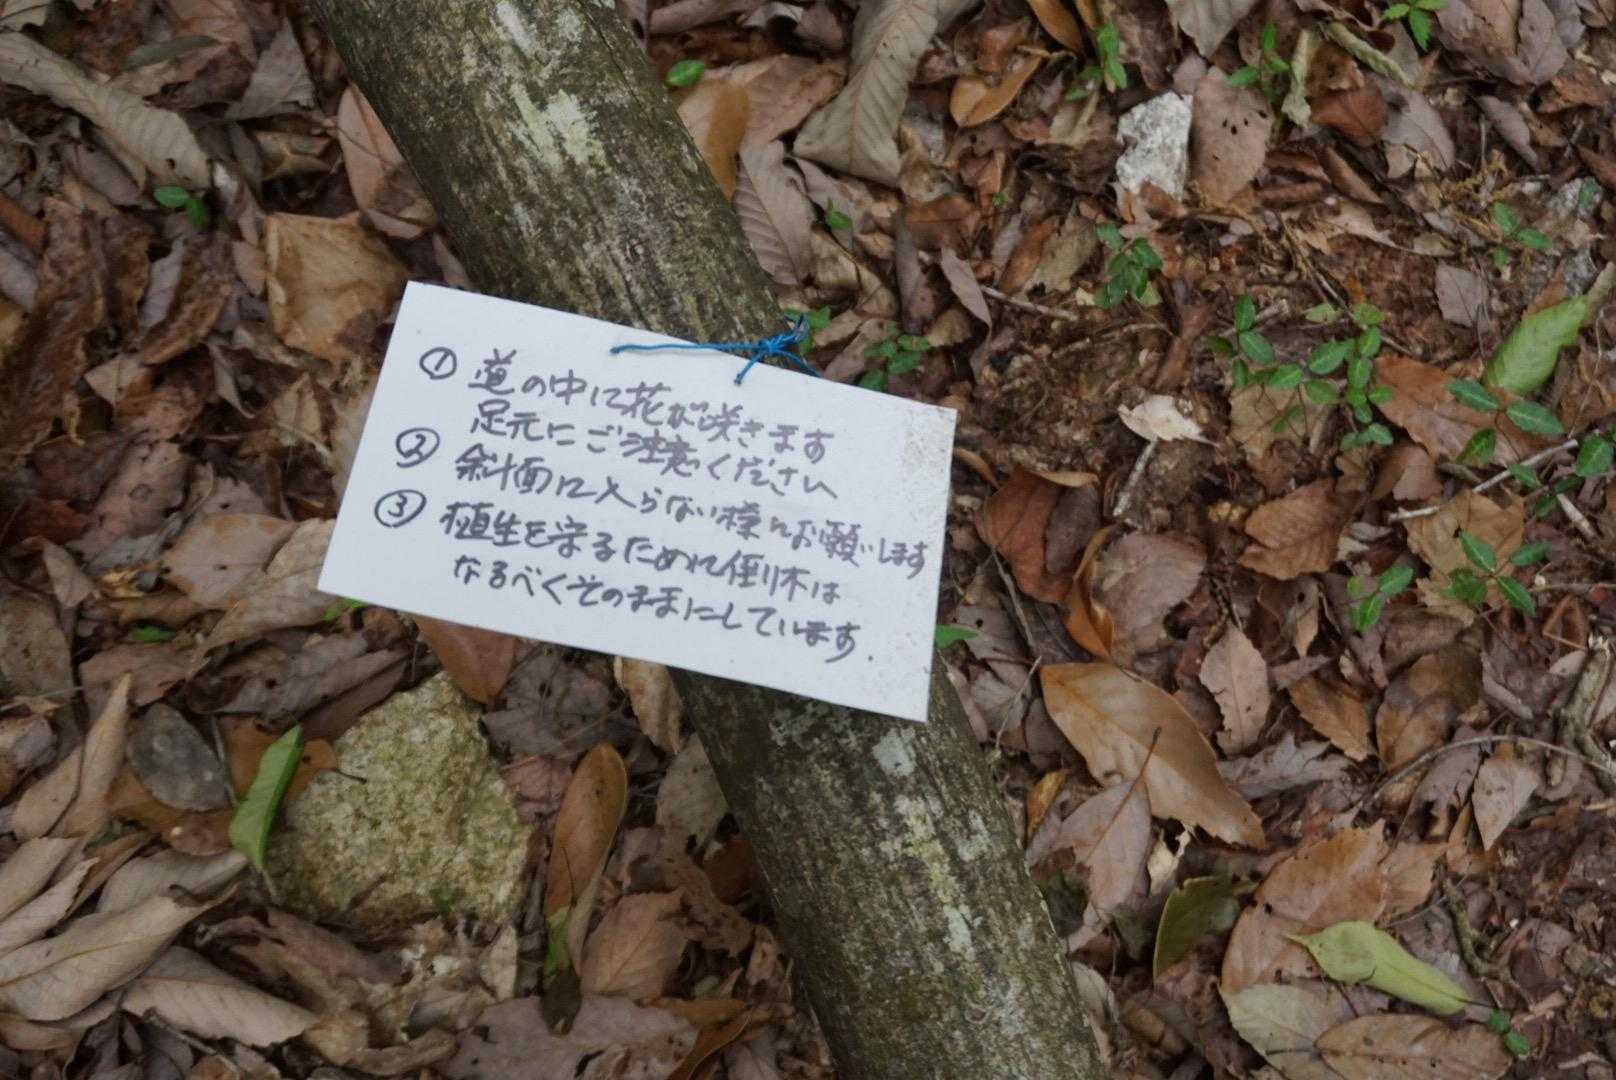 ① 道の中に花が咲きます
足元にご注意ください
② 斜面に入らない様にお願いします
③ 植生を守るために倒木は
なるべくそのままにしています.